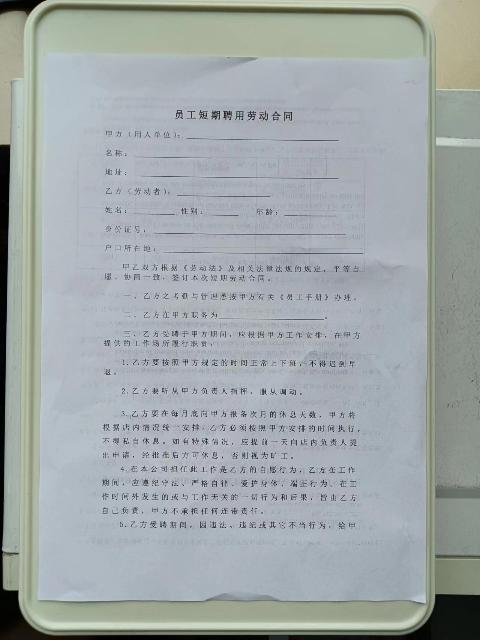 员工短期聘用劳动合同
甲方（用人单位）：
名称：
地址：
乙方（劳动者）：
姓名： 性别： 年龄：
身份证号：
户口所在地：
甲乙双方根据《劳动法》及相关法律法规的规定，平等自
愿、协商一致，签订本次短期劳动合同。
一、乙方之考勤与管理悉按甲方有关《员工手册》办理。
二、乙方在甲方职务为 。
三、乙方受聘于甲方期间，应根据甲方工作安排，在甲方
提供的工作场所履行职责：
1.乙方要按照甲方规定的时间正常上下班，不得迟到早
退。
2.乙方要听从甲方负责人指挥，服从调动。
3.乙方要在每月底向甲方报备次月的休息天数，甲方将
根据店内情况统一安排，乙方必须按照甲方安排的时间执行，
不得私自休息。如有特殊情况，应提前一天向店内负责人提
出申请，经批准后方可休息，否则视为旷工。
4.在本公司担任此工作是乙方的自愿行为，乙方在工作
期间，应遵纪守法，严格自律，爱护身体，端正行为。在工
作时间外发生的或与工作无关的一切行为和后果，皆由乙方
自己负责，甲方不承担任何连带责任。
5.乙方受聘期间，因违法、违纪或其它不当行为，给甲